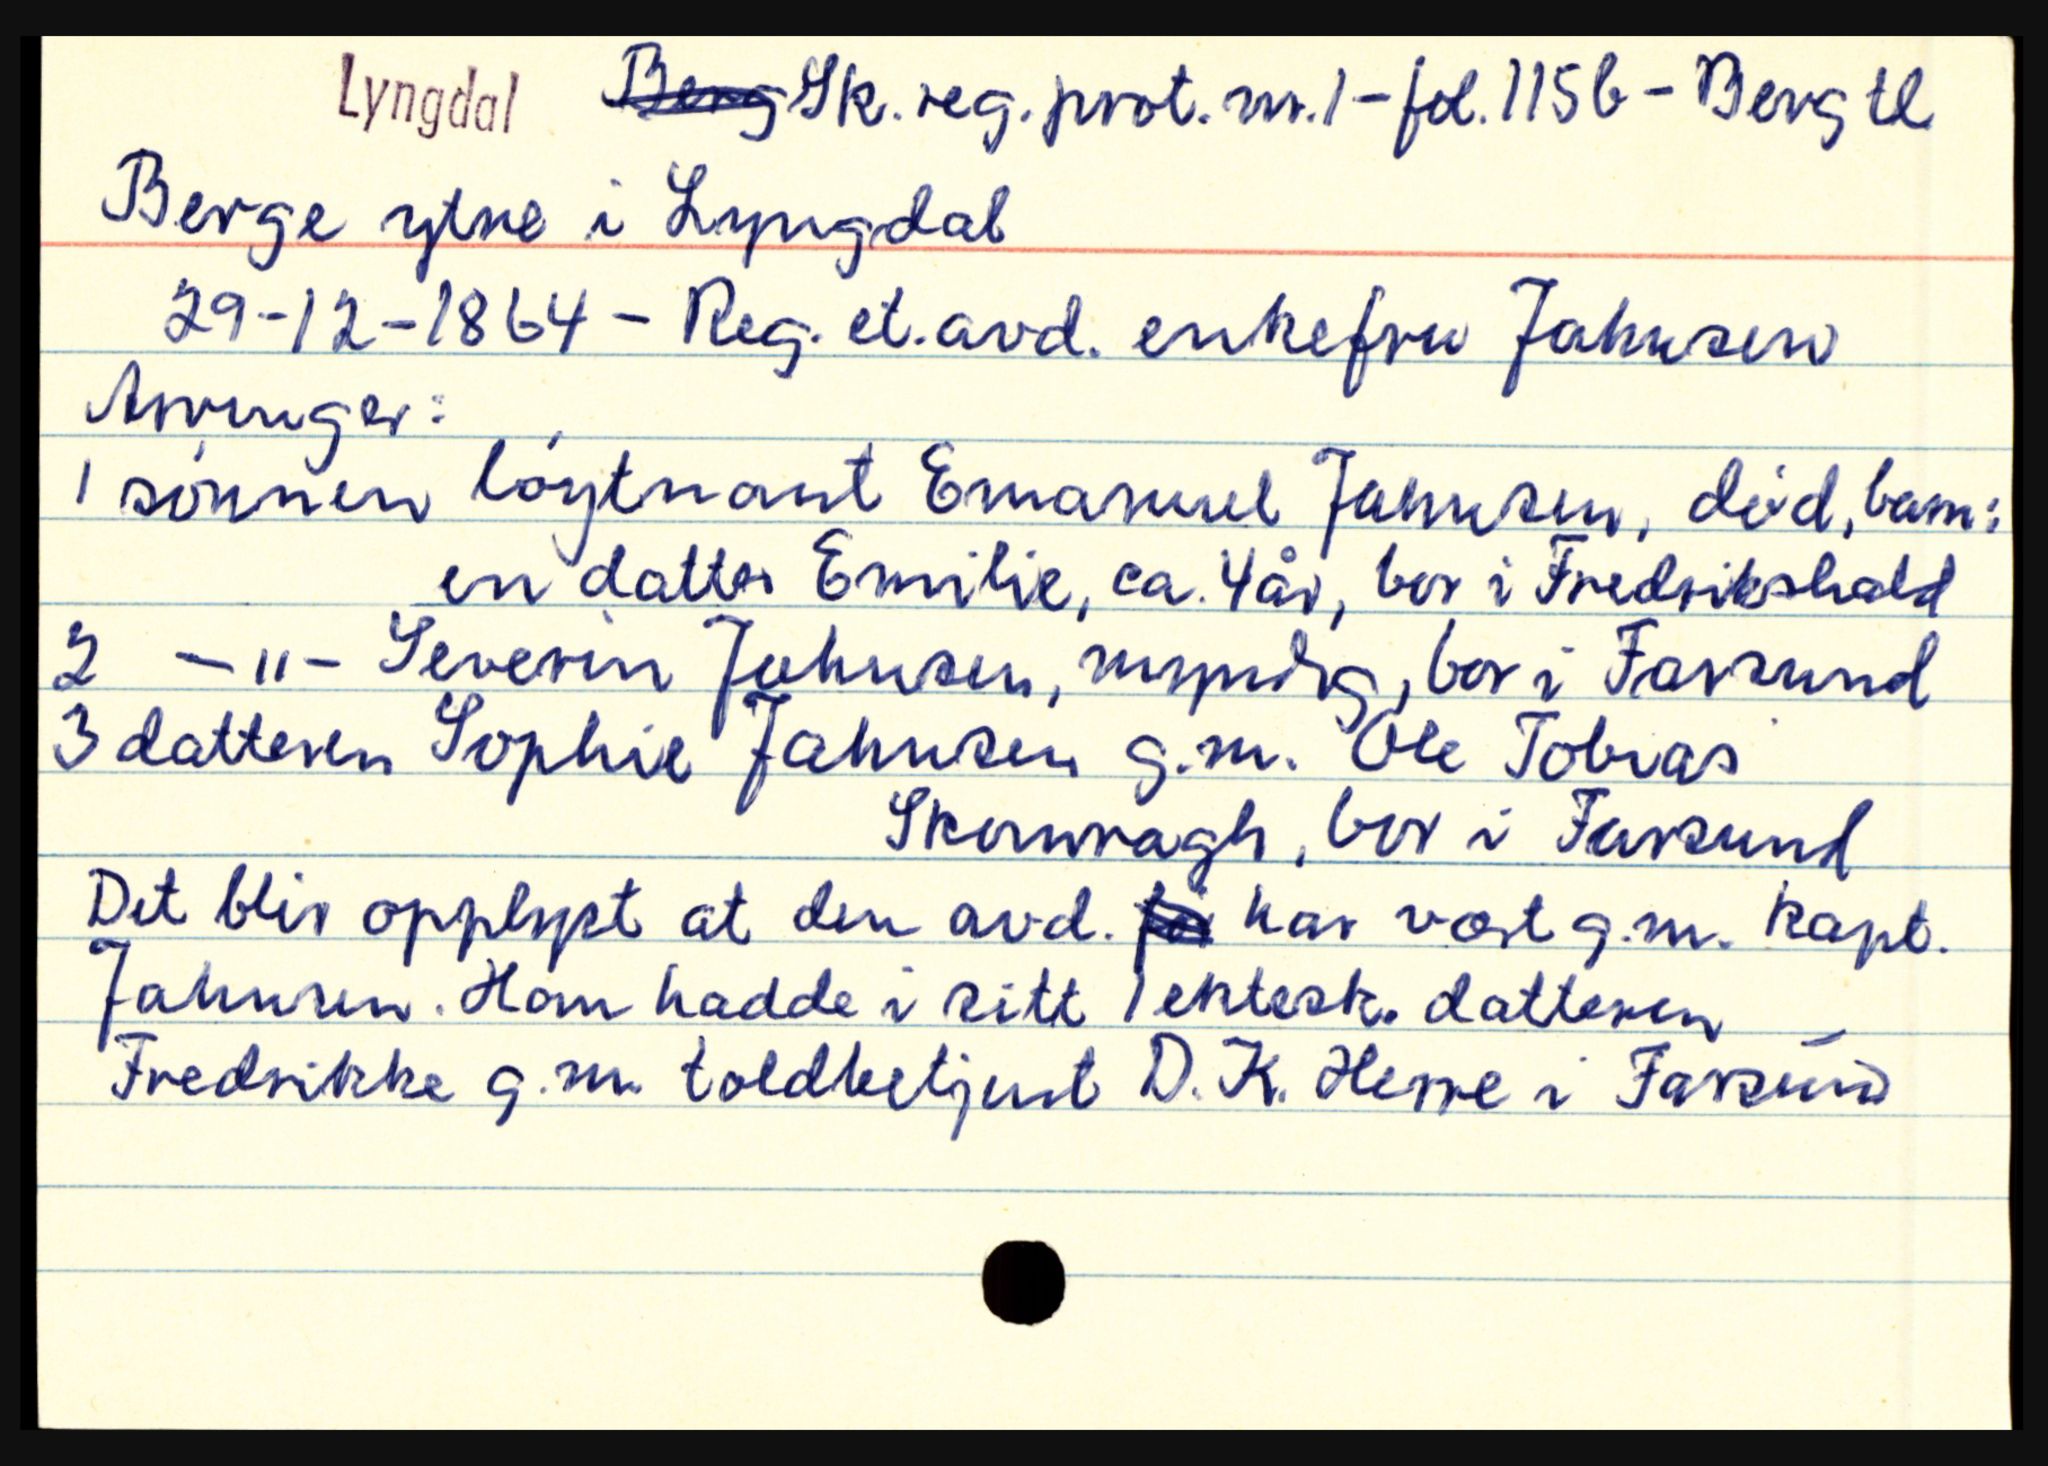 Lyngdal Berg Sk. reg. prot. nr. 1 - fol. 115b - Berg tl
Berge ytre i Lyngdal
29-12-1864 - Reg. et. avd. enkefru Jahnsen
Arvinger:
1 sønnen løytnant Emanuel Jahnsen, død, barn:
en datter Emilie, ca. 4 år, bor i Fredrikshald
2 -"- Severin Jahnsen, myndig, bor i Farsund
3 datteren Sophie Jahnsen g.m. Ole Tobias
bor i Farsund
Det blir opplyst at den avd. har vært g.m. kapt.
Jahnsen. Han hadde i sitt 1 ektesk. datteren
Fredrikke g.m. toldbetjent D. K. Herre i Farsund